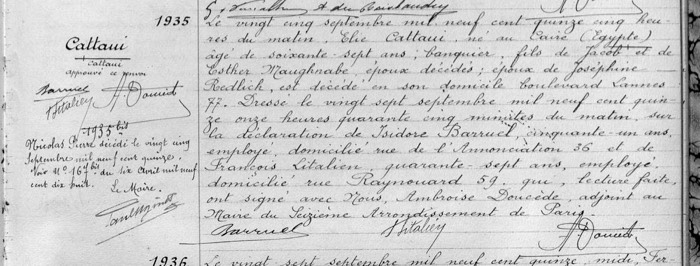 1935
Cattaui
Cattaui
approuvé ce renvoi
Barruel
Litalien
A Doucède
1935 bis
Nicolas Pierre décédé le vingt cinq
Septembre mil neuf cent quinze.
Voir N° 167 bis du six Avril mil neuf
cent dix huit.
Le Maire,
Le vingt cinq septembre mil neuf cent quinze cinq heu-
res du matin, Elie Cattaui, né au Caire (Egypte)
âgé de soixante-sept ans; banquier, fils de Jacob et de
Esther Maughnabe, époux décédés; époux de Joséphine
Redlich, est décédé en son domicile boulevard Lannes
77. Dressé le vingt sept septembre mil neuf cent quin-
ze onze heures quarante cinq minutes du matin, sur
la déclaration de Isidore Barruel, cinquante-un ans,
employé, domicilié rue de l'Annonciation 36 et de
François Litalien, quarante-sept ans, employé,
domicilié rue Raynouard 59. qui, lecture faite,
ont signé avec Nous, Ambroise Doucède, adjoint au
Maire du Seizième Arrondissement de Paris.
Barruel
Litalien
A Doucède
1936
Le vingt sept septembre mil neuf cent quinze, midi, Fer-